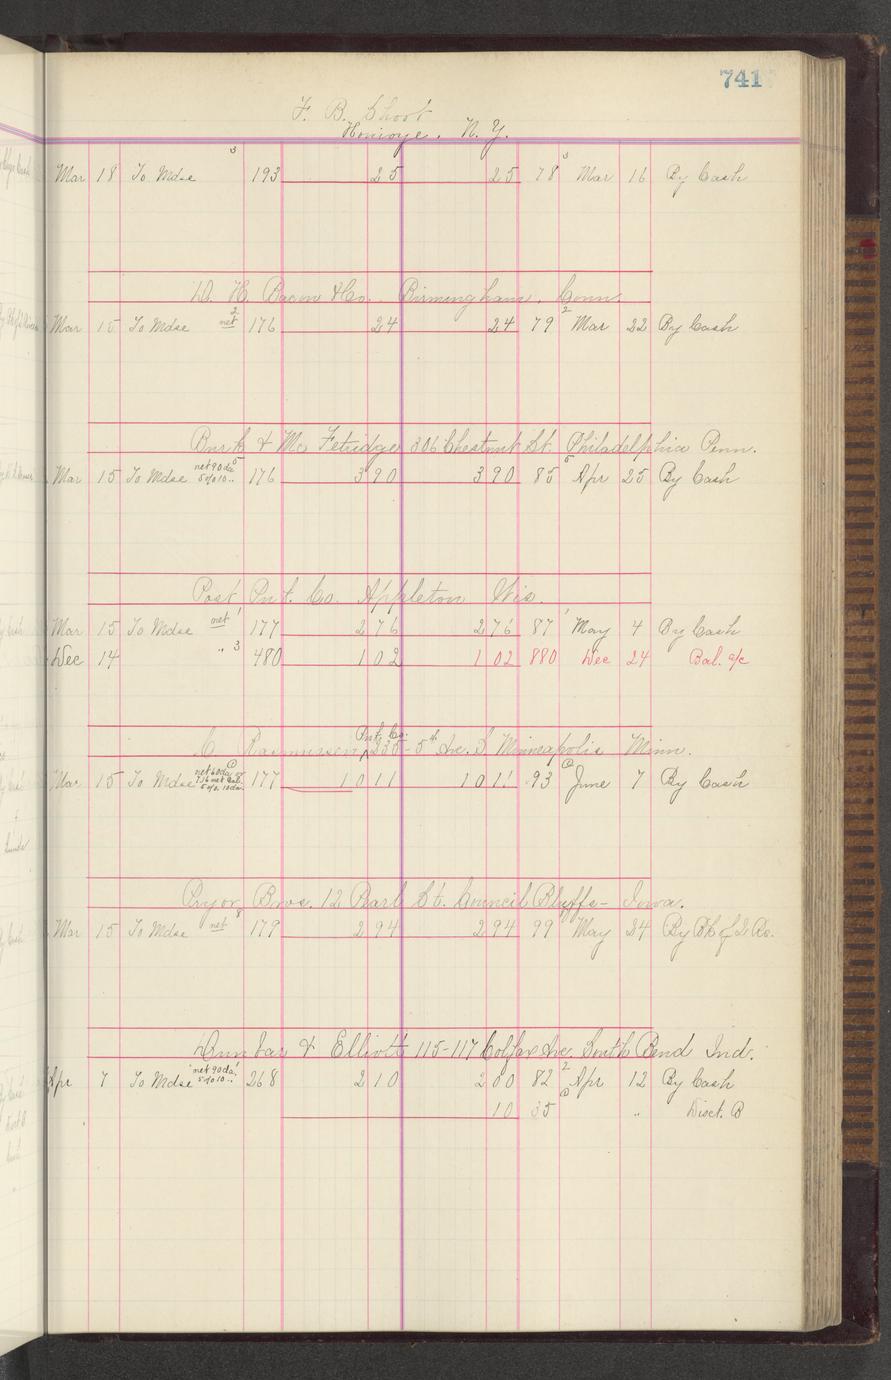 741
F. B. Shoot
Honeoye. N. Y.
3 3
Mar 18 To Mdse 193 25 25 78 Mar 16 By Cash
D. H. Bacon & Co. Birmingham, Conn.
Mar 15 To Mdse net 2 176 24 24 79 2 Mar 22 By Cash
& Mc Fetridge 306 Chestnut St. Philadelphia Penn.
Mar 15 To Mdse net 90 da 5 5% 10 " 176 390 390 85 5 Apr 25 By Cash
Post Pnt. Co. Appleton Wis.
Mar 15 To Mdse net 1 177 276 276 87 1 May 4 By Cash
Dec 14 " 3 480 102 102 880 Dec 24 Bal. a/c
C Rasmussen Pnt. Co. 535 - 5th Ave. S Minneapolis Minn.
Mar 15 To Mdse net 60 da 177 1011 1011 93 June 7 By Cash
Pryor Bros. 12 Pearl St. Council Bluffs - Iowa.
Mar 15 To Mdse net 8 179 294 294 99 May 24
Dunbar & Elliott 115-117 Colfax Ave. South Bend Ind.
Apr 7 To Mdse net 90 da 5% 10 " 268 210 200 82 2 Apr 12 By Cash
10 35 " Disct. B